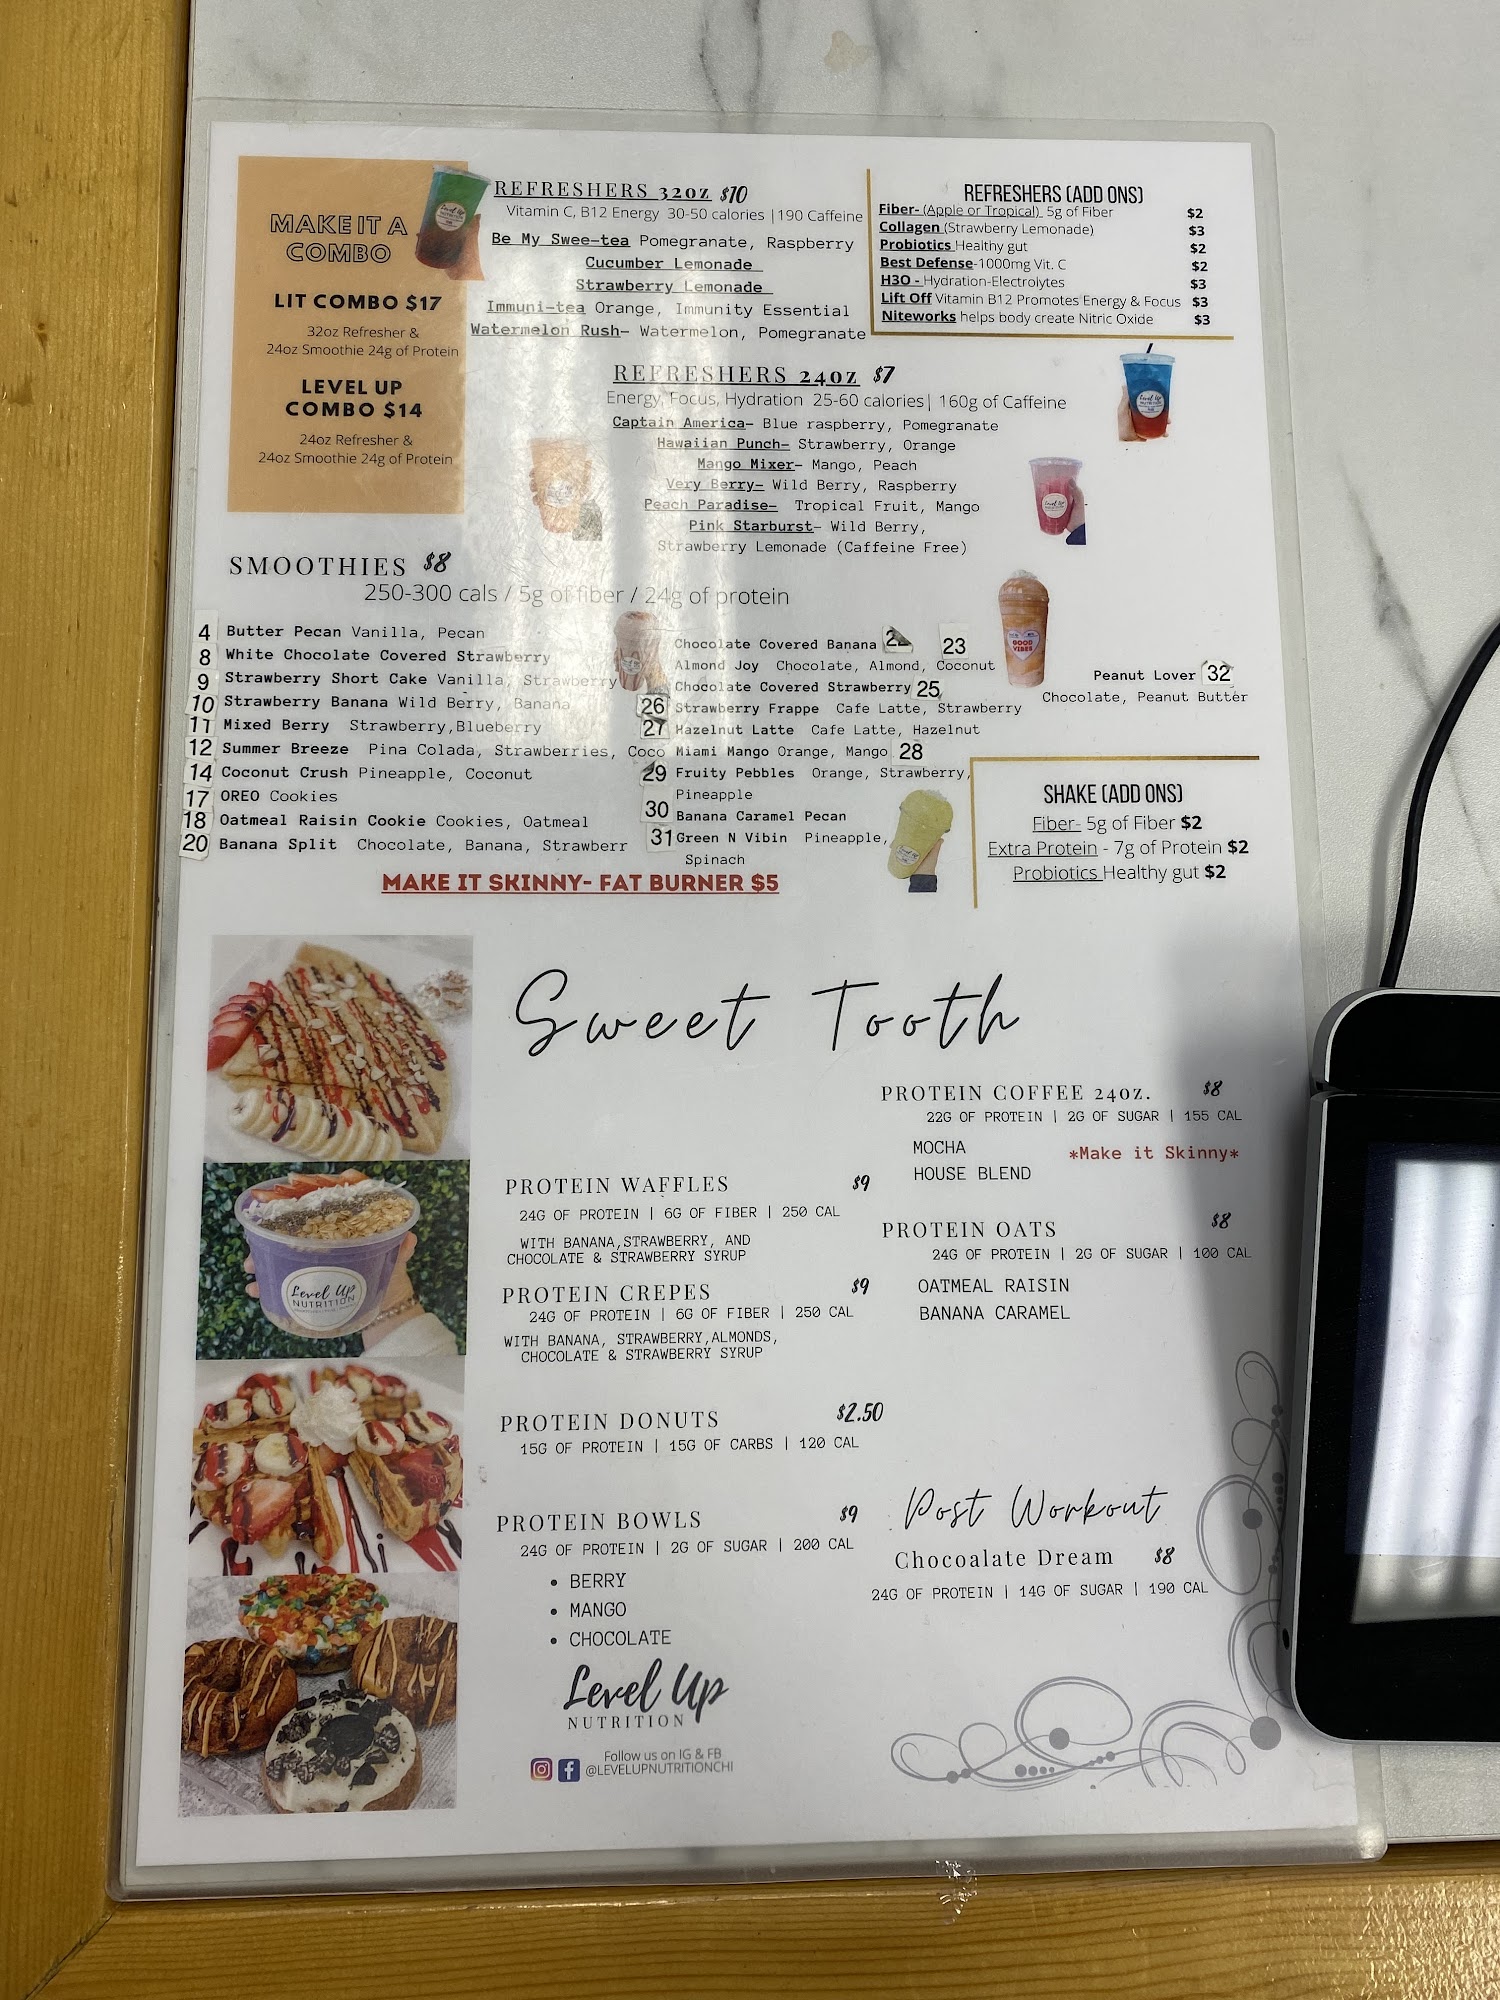 MAKE IT A
COMBO
LIT COMBO $17
32oz Refresher &
24oz Smoothie 24g of Protein
LEVEL UP
COMBO $14
24oz Refresher &
24oz Smoothie 24g of Protein
REFRESHERS 32OZ $10
Vitamin C, B12 Energy 30-50 calories |190 Caffeine
Be My Swee-tea Pomegranate, Raspberry
Cucumber Lemonade
Strawberry Lemonade
Immuni-tea Orange, Immunity Essential
Watermelon Rush- Watermelon, Pomegranate
REFRESHERS (ADD ONS)
Fiber- (Apple or Tropical) 5g of Fiber $2
Collagen (Strawberry Lemonade) $3
Probiotics Healthy gut $2
Best Defense-1000mg Vit. C $2
H3O - Hydration-Electrolytes $3
Lift Off Vitamin B12 Promotes Energy & Focus $3
Niteworks helps body create Nitric Oxide $3
REFRESHERS 24OZ $7
Energy, Focus, Hydration 25-60 calories| 160g of Caffeine
Captain America- Blue raspberry, Pomegranate
Hawaiian Punch- Strawberry, Orange
Mango Mixer- Mango, Peach
Very Berry- Wild Berry, Raspberry
Peach Paradise- Tropical Fruit, Mango
Pink Starburst- Wild Berry,
Strawberry Lemonade (Caffeine Free)
SMOOTHIES $8
250-300 cals / 5g of fiber / 24g of protein
4 Butter Pecan Vanilla, Pecan
8 White Chocolate Covered Strawberry
9 Strawberry Short Cake Vanilla, Strawberry
10 Strawberry Banana Wild Berry, Banana
11 Mixed Berry Strawberry,Blueberry
12 Summer Breeze Pina Colada, Strawberries, Coco
14 Coconut Crush Pineapple, Coconut
17 OREO Cookies
18 Oatmeal Raisin Cookie Cookies, Oatmeal
20 Banana Split Chocolate, Banana, Strawberr
Chocolate Covered Banana 23
Almond Joy Chocolate, Almond, Coconut
Chocolate Covered Strawberry 25
26 Strawberry Frappe Cafe Latte, Strawberry
27 Hazelnut Latte Cafe Latte, Hazelnut
Miami Mango Orange, Mango 28
29 Fruity Pebbles Orange, Strawberry,
Pineapple
30 Banana Caramel Pecan
31 Green N Vibin Pineapple,
Spinach
GOOD
VIBES
Peanut Lover 32
Chocolate, Peanut Butter
MAKE IT SKINNY- FAT BURNER $5
SHAKE (ADD ONS)
Fiber- 5g of Fiber $2
Extra Protein - 7g of Protein $2
Probiotics Healthy gut $2
Sweet Tooth
PROTEIN WAFFLES $9
24G OF PROTEIN | 6G OF FIBER | 250 CAL
WITH BANANA,STRAWBERRY, AND
CHOCOLATE & STRAWBERRY SYRUP
PROTEIN CREPES $9
24G OF PROTEIN | 6G OF FIBER | 250 CAL
WITH BANANA, STRAWBERRY,ALMONDS,
CHOCOLATE & STRAWBERRY SYRUP
PROTEIN DONUTS $2.50
15G OF PROTEIN | 15G OF CARBS | 120 CAL
PROTEIN BOWLS $9
24G OF PROTEIN | 2G OF SUGAR | 200 CAL
• BERRY
• MANGO
• CHOCOLATE
PROTEIN COFFEE 24OZ. $8
22G OF PROTEIN | 2G OF SUGAR | 155 CAL
MOCHA
*Make it Skinny*
HOUSE BLEND
PROTEIN OATS $8
24G OF PROTEIN | 2G OF SUGAR | 100 CAL
OATMEAL RAISIN
BANANA CARAMEL
Post Workout
Chocoalate Dream $8
24G OF PROTEIN | 14G OF SUGAR | 190 CAL
Level Up
NUTRITION
Level Up
NUTRITION
Follow us on IG & FB
@LEVELUPNUTRITIONCHI